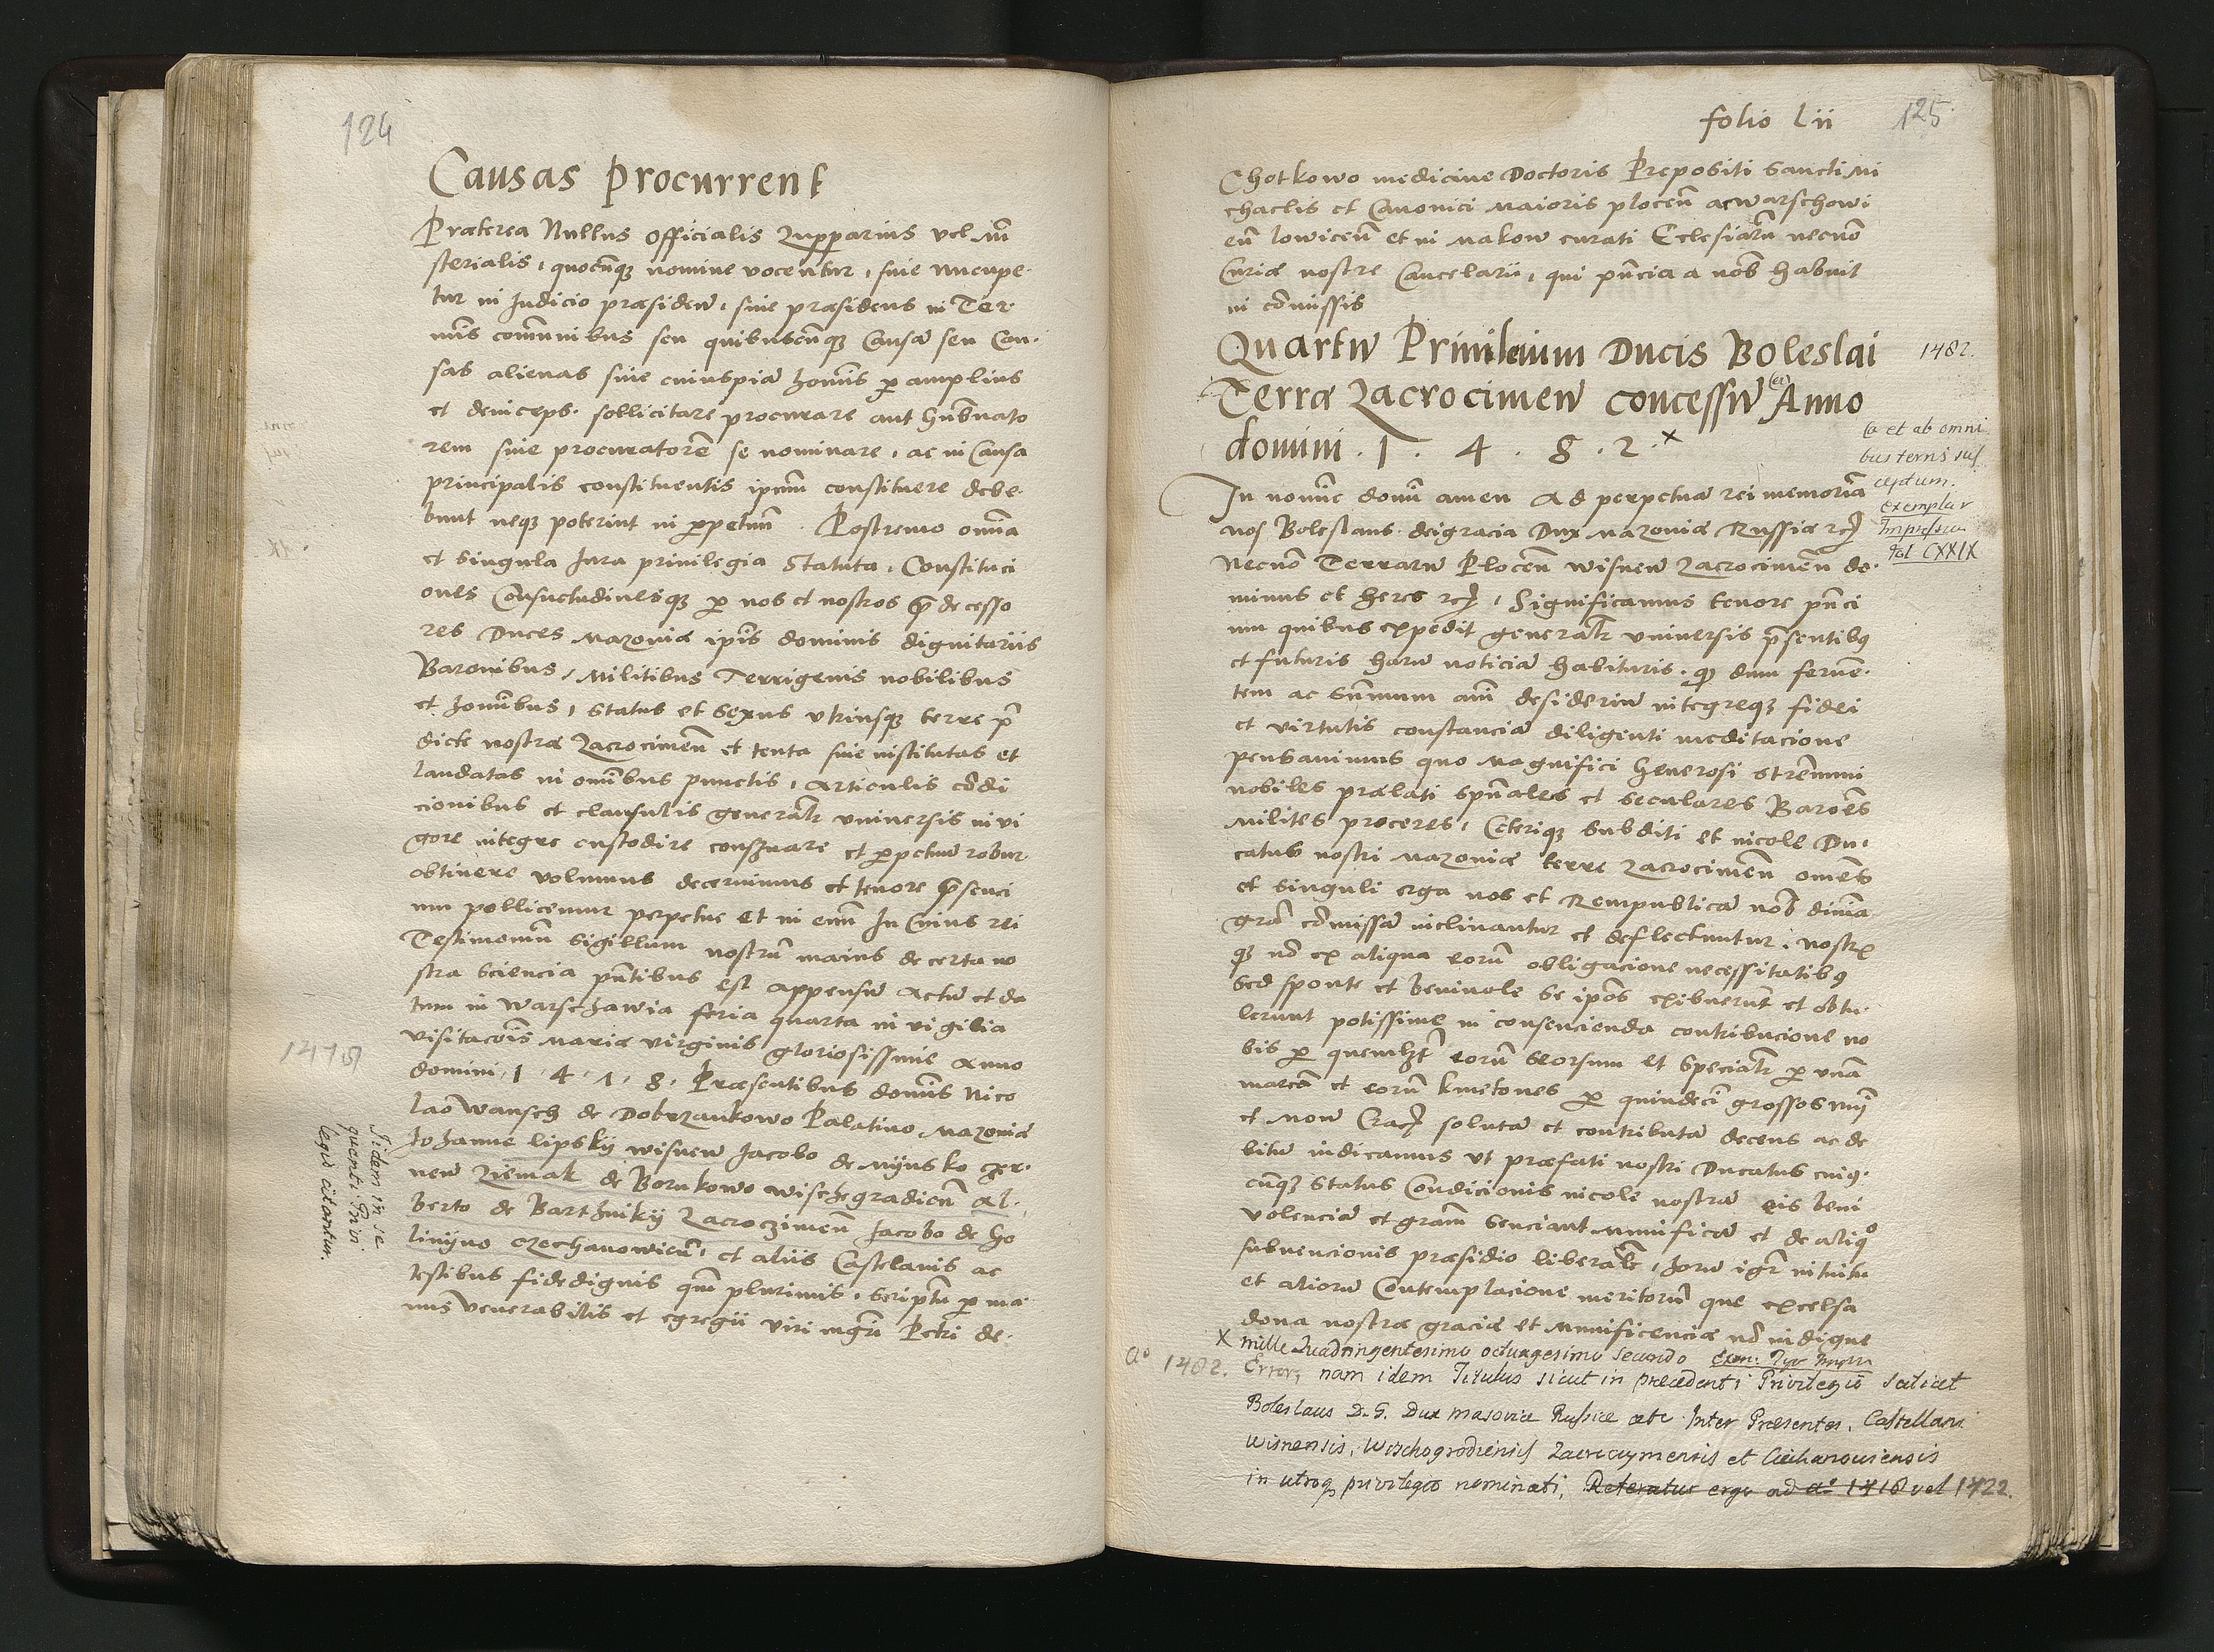 124
Causas procurrent
Præterea Nullus officialis Zupparius vel mi
sterialis, quocunq nomine vocentur, siue nuncupe-
tur in Iudicio præsiden, siue præsidens in Ter-
mis communibus seu quibuscunq Causa seu Cau-
sas alienas siue cuiuspia homis p amplius
et deinceps. sollicitare procurare aut
rem siue procuratore se nominare, ac in Causa
principalis constituentis ipsum constituere debe-
bunt neq poterint in ppetuum. Postremo omia
et singula Iura priuilegia Statuta, Constituci
ones Consuetudinesq p nos et nostros predecesso
res Duces Mazouiæ ipis dominis dignitariis
Baronibus, Militibus Terrigenis nobilibus
et homibus, status et sexus vtriusq terre p
dicte nostræ Zacrocimen et tenta siue institutas et
laudatas in omibus punctis, articulis codi
cionibus et clausulis generalr vniuersis in vi
gore integre custodire conseruare et ppetuu robur
obtinere volumus decernimus et tenore psenci
um pollicemur perpetue et in euum In Cuius rei
Testimonium Sigillum nostru maius de certa no
stra sciencia pntibus est appensu Actu et da
tum in Warschawia feria quarta in vigilia
visitacois Mariæ virginis gloriosissimæ Anno
domini 1 4 1 8. Præsentibus domis Nico
lao Wansch de Dobrzankowo Palatino Mazouiæ
Iohanne lipskij wisnen Iacobo de Mijnsko czer-
nen Ziemak de Borukowo wischegradien Al-
berto de Barthnikij Zacroczimen Iacobo de Go
limijno czechanowien, et aliis Castelanis ac
testibus fidedignis qm plurimis, scriptu p ma
nus venerabilis et egregii viri mgri Petri de-
Iidem in se
quenti Privi
legio citantur.
folio Lii
125
Chotkowo medicine Doctoris Prepositi sancti Mi
chaelis et Canonici Maioris plocen ac warschowi
en lowicen et in Makow curati Eclesiaru necno
Curiæ nostre Cancelarii, qui pncia a nob habuit
in comissis
Quartu Priuileium Ducis Boleslai
1482.
Terræ Zacrocimen concessu Anno
domini . 1 . 4 . 8 . 2 . x
et ab omni
bus terris sus
ceptum.
exemplar
Impressu
fol CXXIX
In nomie domi amen Ad perpetua rei memoria
nos Boleslaus dei gracia Dux Mazouiæ Russiæ rc
Necno Terraru Plocen wisnen Zacrocimen do-
minus et heres rc, Significamus tenore pnci
um quibus expedit generalr vniuersis psentibus
et futuris haru noticia habituris. q dum ferue-
tem ac summum aui desideriu integreq fidei
et virtutis constancia diligenti meditacione
pensauimus quo Magnifici Generosi strennui
nobiles prælati spuales et seculares Baroes
Milites proceres, Ceteriq subditi et incole Du-
catus nostri Mazouiæ terre Zacrocimen omes
et singuli erga nos et Rempublica nob diuia
gra comissa inclinantur et deflectuntur, nostr
q no ex aliqua eoru obligacione necessitatibus
sed sponte et beniuole se ipos exibuerut et obtu-
lerunt potissime in consencienda contribucione no
bis p quemlzt eoru seorsum et specialr p vna
marca et eoru kmetones p quindeci grossos
et mone Crac soluta et contributa decens ac de
bitu iudicamus vt præfati nostri Ducatus cuius-
cunq status Condicionis incole nostra eis beni
volencia et gram senciant munifica et de aliquo
subuencionis præsidio liberale, horu igr intuitu
et alioru Contemplacione meritoru que excelsa
dona nostræ graciæ et munificenciæ no indigne
x mille Quadringentesimo octuagesimo secundo
aº 1482. Error, nam idem Titulus sicut in precedenti Privilegio scilicet
Boleslaus D. G. Dux Masoviæ Russiæ etc. Inter Præsentes, Castellani
Wisnensis, Wischogrodiensis Zacroczymensis et Ciechanoviensis
in utroq privilegio nominati, Referatur ergo ad aº 1418 vel 1422.